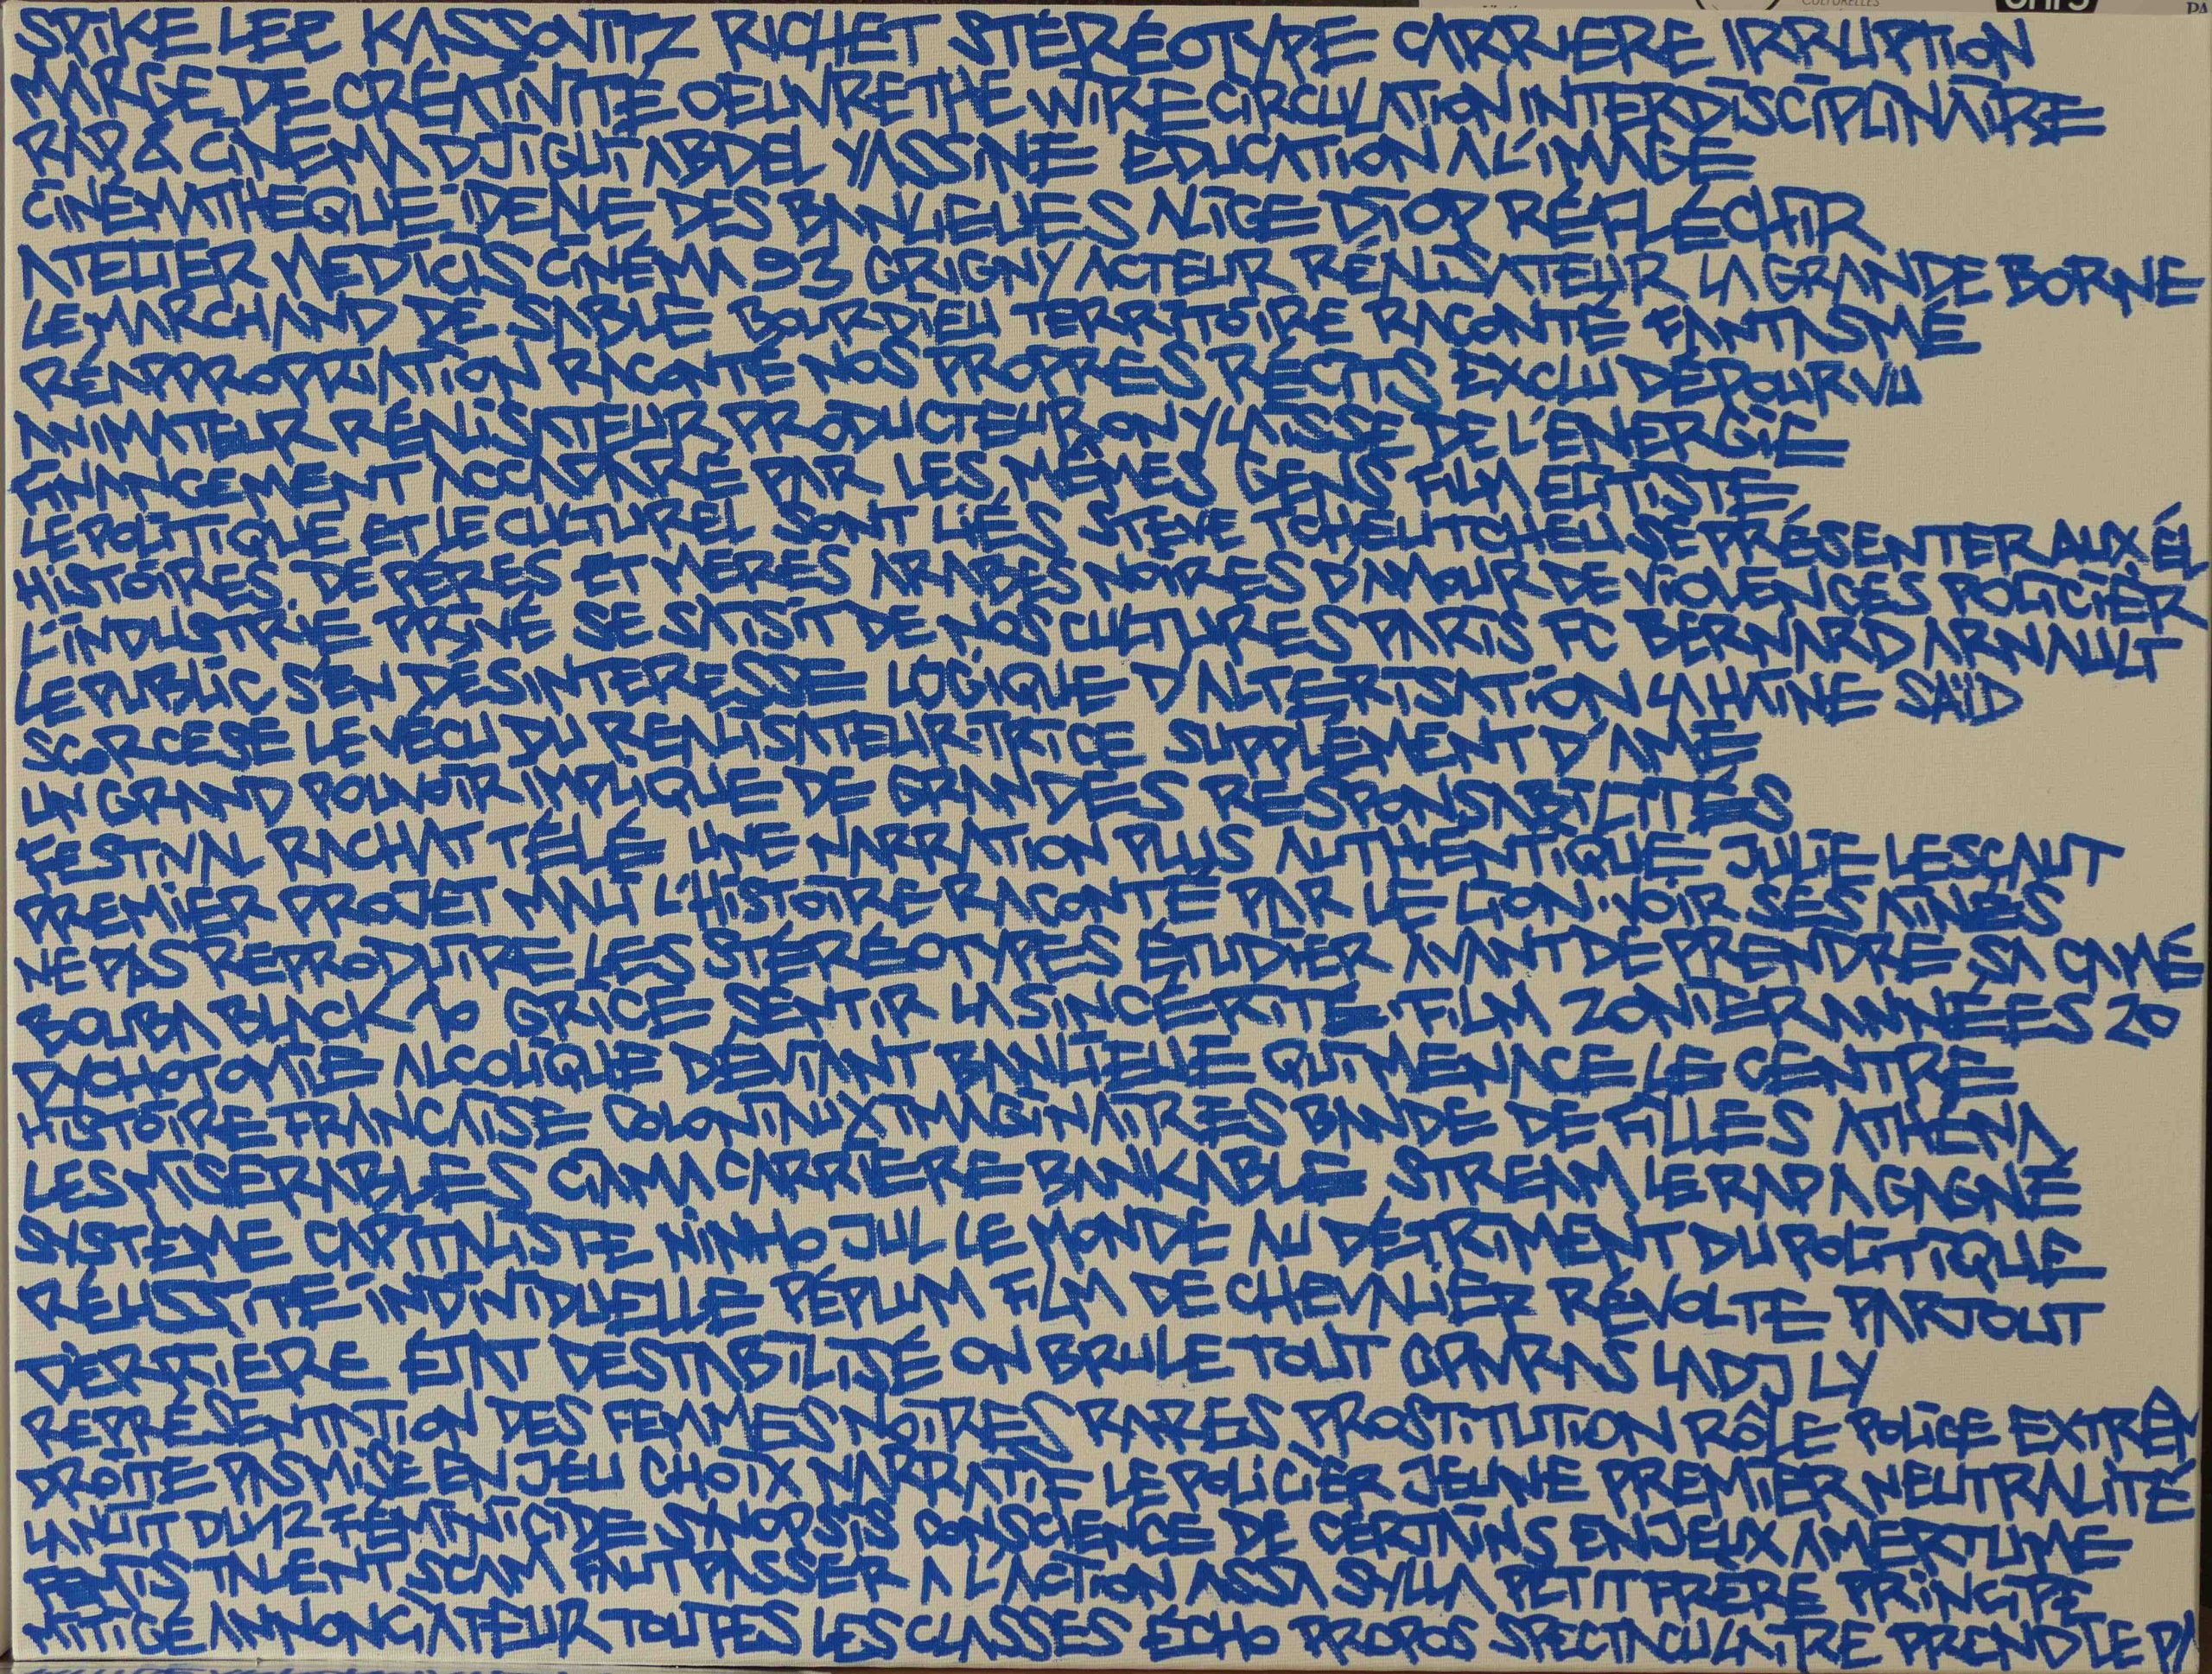 CULTURELLES
SPIKE LEE KASSOVITZ RICHET STÉRÉOTYPE CARRIERE IRRUPTION
MARGE DE CRÉATIVITÉ OEUVRE THE WIRE CIRCULATION INTERDISCIPLINAIRE
RAP & CINEMA DJIGUI ABDEL YASSINE EDUCATION A L'IMAGE
CINÉMATHEQUE IDEALE DES BANLIEUES ALICE DIOP RÉFLÉCHIR
ATELIER MEDICIS CINÉMA 93 GRIGNY ACTEUR RÉALISATEUR LA GRANDE BORNE
LE MARCHAND DE SABLE BOURDIEU TERRITOIRE RACONTÉ FANTASMÉ
RÉAPPROPRIATION RACONTÉ NOS PROPRES RÉCITS EXCLU DÉPOURVU
ANIMATEUR RÉALISATEUR PRODUCTEUR ON Y LAISSE DE L'ÉNERGIE
FINANCEMENT ACCAPARÉ PAR LES MÊMES GENS FILM ELITISTE
LE POLITIQUE ET LE CULTUREL SONT LIÉS STEVE TCHEUTCHEU SE PRÉSENTER AUX ÉL
HISTOIRES DE PÉRES ET MERES ARABES NOIRES D'AMOUR DE VIOLENCES POLICIÈR
L'INDUSTRIE PRIVÉ SE SAISIT DE NOS CULTURES PARIS FC BERNARD ARNAULT
LE PUBLIC S'EN DÉSINTERESSE LOGIQUE D'ALTERISATION LA HAINE SAÏD
SCORCESE LE VÉCU DU REALISATEUR·TRICE SUPPLÉMENT D'AME
UN GRAND POUVOIR IMPLIQUE DE GRANDES RESPONSABILITÉS
FESTIVAL RACHAT TÉLÉ UNE NARRATION PLUS AUTHENTIQUE JULIE LESCAUT
PREMIER PROJET MALI L'HISTOIRE RACONTÉ PAR LE LION. VOIR SES AINÉS
NE PAS REPRODUIRE LES STÉRÉOTYPES ÉTUDIER AVANT DE PRENDRE SA CAMÉ
BOUBA BLACK GRICE SENTIR LA SINCÉRITÉ. FILM ZONIER ANNÉES 20
DYCHOTOMIE ALCOLIQUE DÉVIANT BANLIEUE QUI MENACE LE CENTRE
HISTOIRE FRANCAISE COLONIAUX IMAGINAIRES BANDE DE FILLES ATHÉNA
LES MISERABLES CARRIERE BANKABLE STREAM LE RAP A GAGNÉ
SYSTÈME CAPITALISTE NINHO JUL LE MONDE AU DÉTRIMENT DU POLITIQUE
RÉUSSITE INDIVIDUELLE PÉPLUM FILM DE CHEVALIER RÉVOLTE PARTOUT
DERRIERE ÉTAT DESTABILISÉ ON BRULE TOUT LADJ LY
REPRÉSENTATION DES FEMMES NOIRES RARES PROSTITUTION RÔLE POLICE EXTRÊM
DROITE PAS MISE EN JEU CHOIX NARRATIF LE POLICIER JEUNE PREMIER NEUTRALITÉ
LA NUIT DU 12 FÉMINICIDE SYNOPSIS CONSCIENCE DE CERTAINS ENJEUX AMERTUME
FEMIS TALENT SCAM FAUT PASSER A L'ACTION ASSA SYLLA PETIT FRÈRE PRINCIPE
MITIGÉ ANNONCIATEUR TOUTES LES CLASSES ÉCHO PROPOS SPECTACULAIRE PREND LE